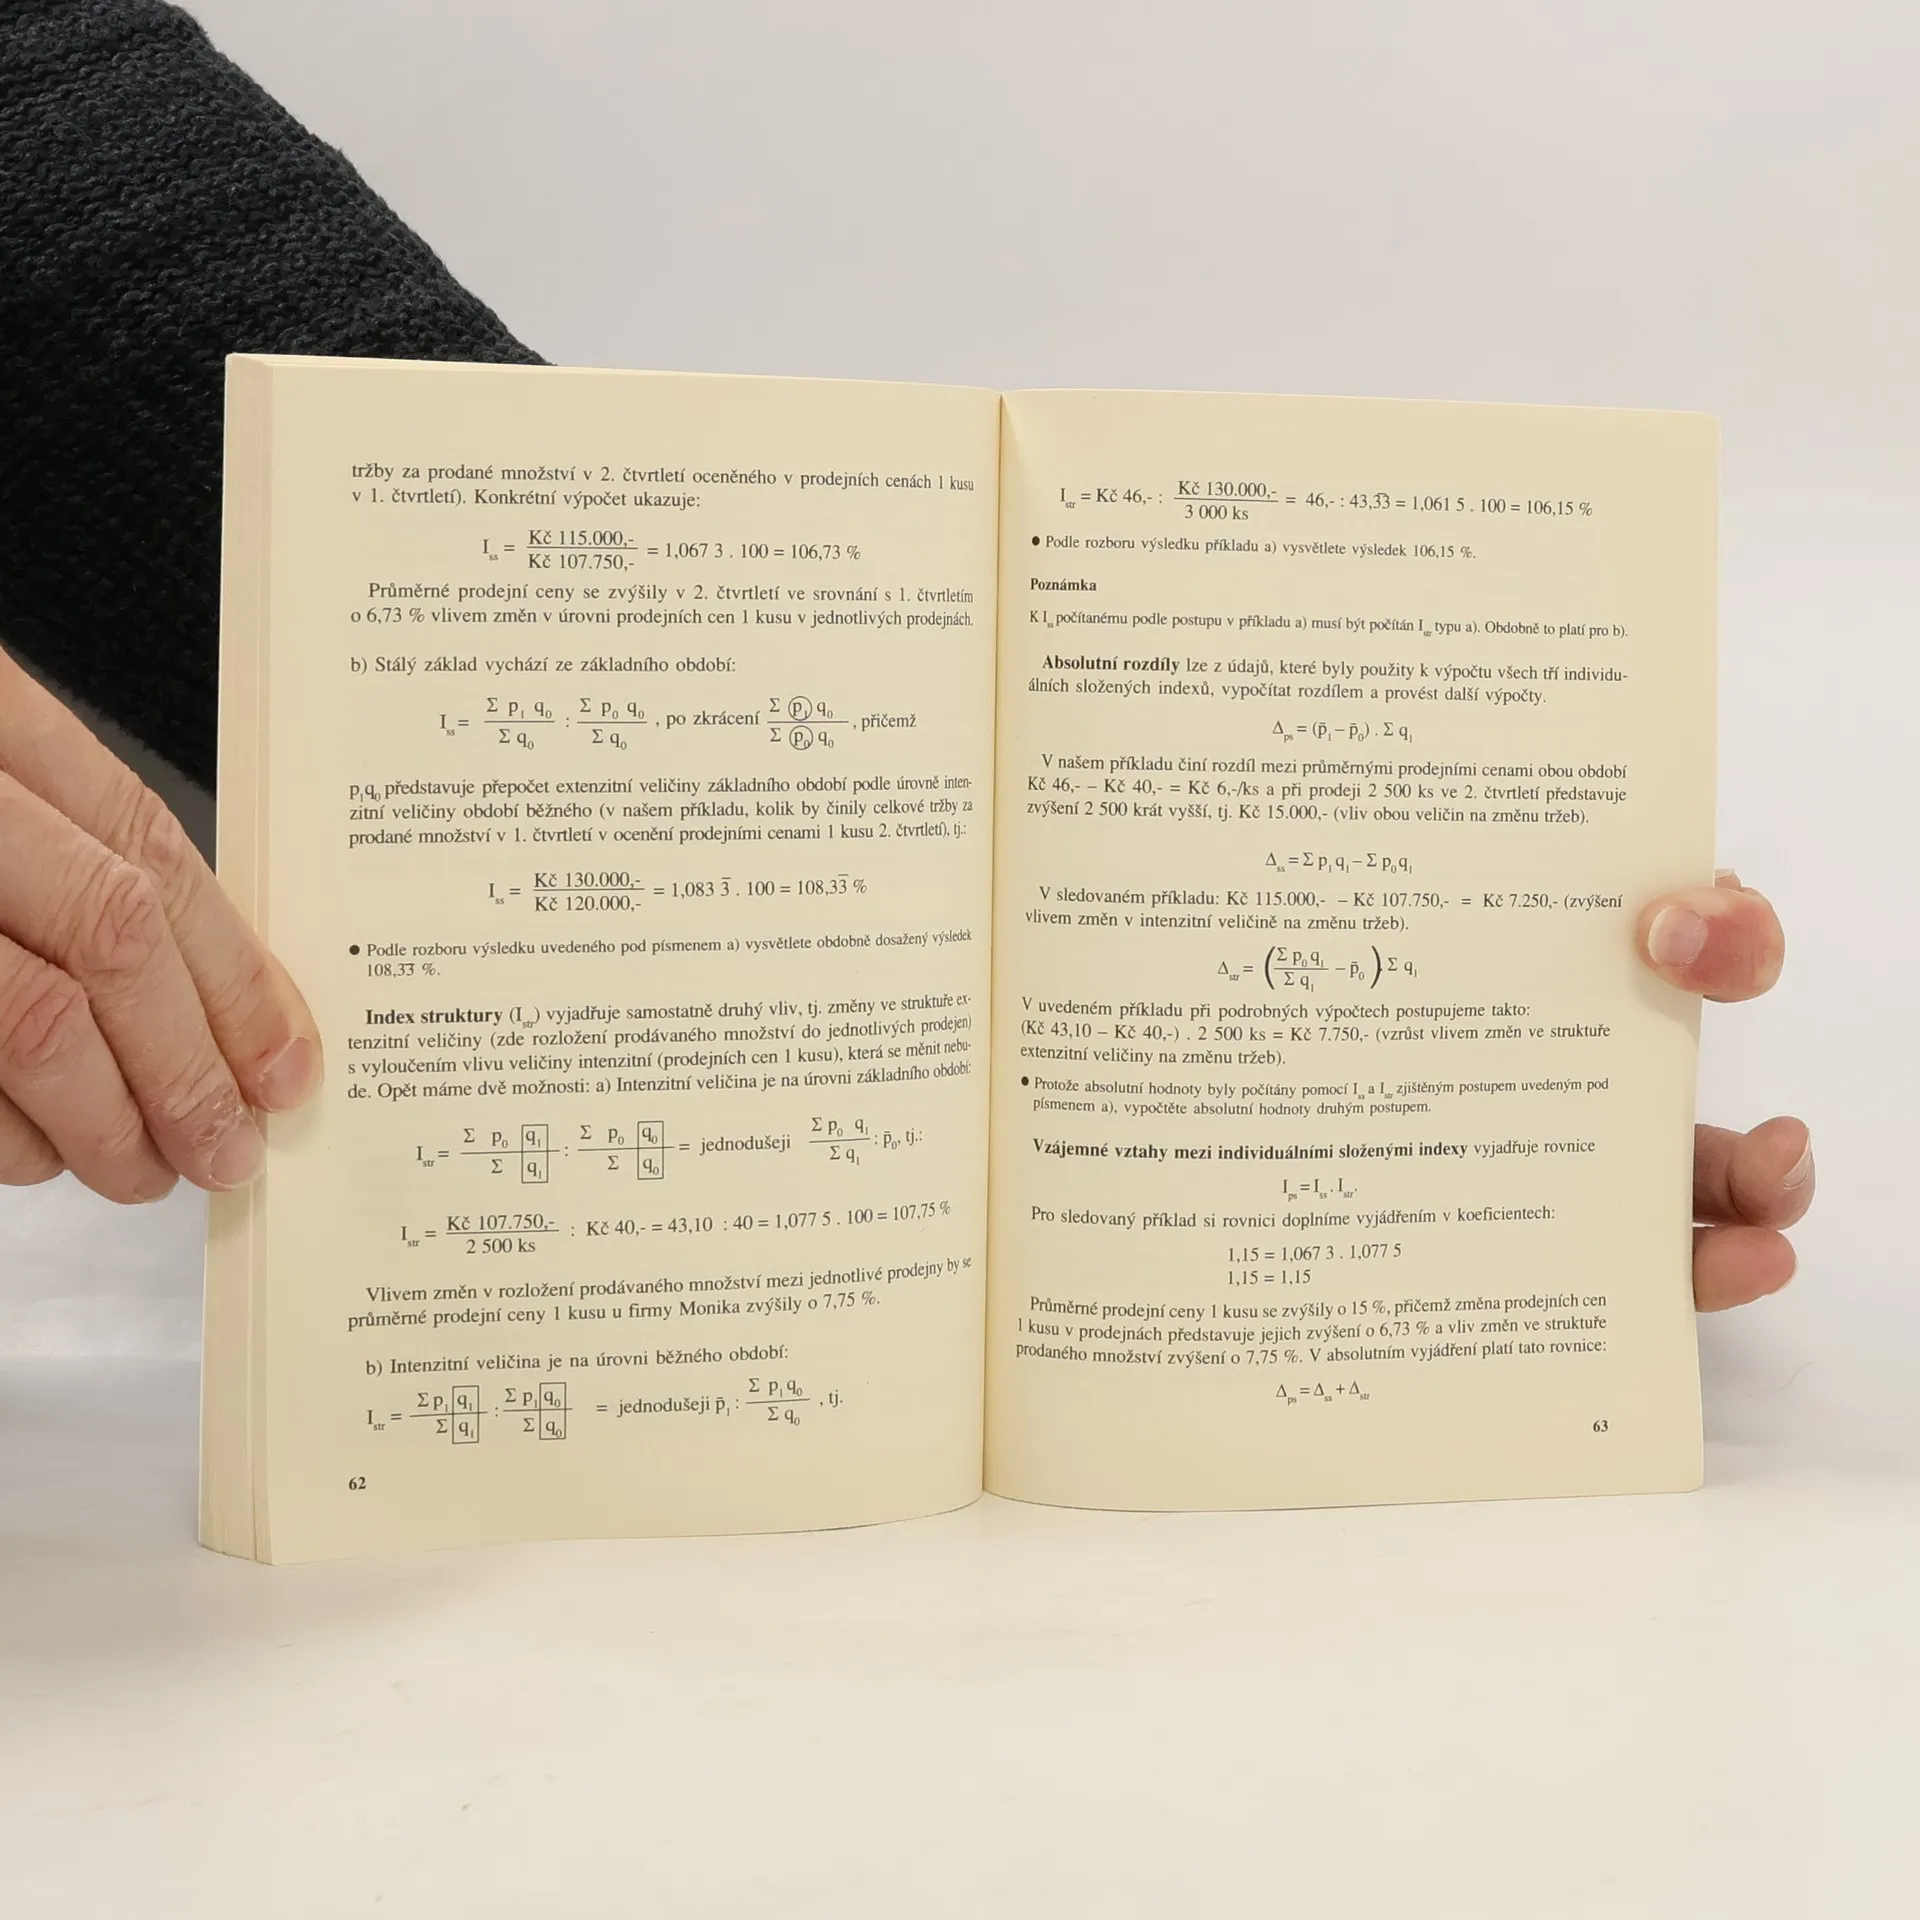 tržby za prodané množství v 2. čtvrtletí oceněného v prodejních cenách 1 kusu
v 1. čtvrtletí). Konkrétní výpočet ukazuje:
I_ss = Kč 115.000,- / Kč 107.750,- = 1,067 3 . 100 = 106,73 %
Průměrné prodejní ceny se zvýšily v 2. čtvrtletí ve srovnání s 1. čtvrtletím
o 6,73 % vlivem změn v úrovni prodejních cen 1 kusu v jednotlivých prodejnách.
b) Stálý základ vychází ze základního období:
I_ss = Σ p₁ q₀ / Σ q₀ : Σ p₀ q₀ / Σ q₀ , po zkrácení Σ p₁ q₀ / Σ p₀ q₀ , přičemž
p₁q₀ představuje přepočet extenzitní veličiny základního období podle úrovně inten-
zitní veličiny období běžného (v našem příkladu, kolik by činily celkové tržby za
prodané množství v 1. čtvrtletí v ocenění prodejními cenami 1 kusu 2. čtvrtletí), tj.:
I_ss = Kč 130.000,- / Kč 120.000,- = 1,083 3̅ . 100 = 108,33̅ %
● Podle rozboru výsledku uvedeného pod písmenem a) vysvětlete obdobně dosažený výsledek
108,3̅3̅ %.
Index struktury (I_str) vyjadřuje samostatně druhý vliv, tj. změny ve struktuře ex-
tenzitní veličiny (zde rozložení prodávaného množství do jednotlivých prodejen)
s vyloučením vlivu veličiny intenzitní (prodejních cen 1 kusu), která se měnit nebu-
de. Opět máme dvě možnosti: a) Intenzitní veličina je na úrovni základního období:
I_str = Σ p₀ q₁ / Σ q₁ : Σ p₀ q₀ / Σ q₀ = jednodušeji Σ p₀ q₁ / Σ q₁ : p̄₀, tj.:
I_str = Kč 107.750,- / 2 500 ks : Kč 40,- = 43,10 : 40 = 1,077 5 . 100 = 107,75 %
Vlivem změn v rozložení prodávaného množství mezi jednotlivé prodejny by se
průměrné prodejní ceny 1 kusu u firmy Monika zvýšily o 7,75 %.
b) Intenzitní veličina je na úrovni běžného období:
I_str = Σ p₁ q₁ / Σ q₁ : Σ p₁ q₀ / Σ q₀ = jednodušeji p̄₁ : Σ p₁ q₀ / Σ q₀ , tj.
62
I_str = Kč 46,- : Kč 130.000,- / 3 000 ks = 46,- : 43,3̅3̅ = 1,061 5 . 100 = 106,15 %
● Podle rozboru výsledku příkladu a) vysvětlete výsledek 106,15 %.
Poznámka
K I_ss počítanému podle postupu v příkladu a) musí být počítán I_str typu a). Obdobně to platí pro b).
Absolutní rozdíly lze z údajů, které byly použity k výpočtu všech tří individu-
álních složených indexů, vypočítat rozdílem a provést další výpočty.
Δ_ps = (p̄₁ – p̄₀) . Σ q₁
V našem příkladu činí rozdíl mezi průměrnými prodejními cenami obou období
Kč 46,- – Kč 40,- = Kč 6,-/ks a při prodeji 2 500 ks ve 2. čtvrtletí představuje
zvýšení 2 500 krát vyšší, tj. Kč 15.000,- (vliv obou veličin na změnu tržeb).
Δ_ss = Σ p₁ q₁ – Σ p₀ q₁
V sledovaném příkladu: Kč 115.000,- – Kč 107.750,- = Kč 7.250,- (zvýšení
vlivem změn v intenzitní veličině na změnu tržeb).
Δ_str = (Σ p₀ q₁ / Σ q₁ – p̄₀) . Σ q₁
V uvedeném příkladu při podrobných výpočtech postupujeme takto:
(Kč 43,10 – Kč 40,-) . 2 500 ks = Kč 7.750,- (vzrůst vlivem změn ve struktuře
extenzitní veličiny na změnu tržeb).
● Protože absolutní hodnoty byly počítány pomocí I_ss a I_str zjištěným postupem uvedeným pod
písmenem a), vypočtěte absolutní hodnoty druhým postupem.
Vzájemné vztahy mezi individuálními složenými indexy vyjadřuje rovnice
I_ps = I_ss . I_str.
Pro sledovaný příklad si rovnici doplníme vyjádřením v koeficientech:
1,15 = 1,067 3 . 1,077 5
1,15 = 1,15
Průměrné prodejní ceny 1 kusu se zvýšily o 15 %, přičemž změna prodejních cen
1 kusu v prodejnách představuje jejich zvýšení o 6,73 % a vliv změn ve struktuře
prodaného množství zvýšení o 7,75 %. V absolutním vyjádření platí tato rovnice:
Δ_ps = Δ_ss + Δ_str
63